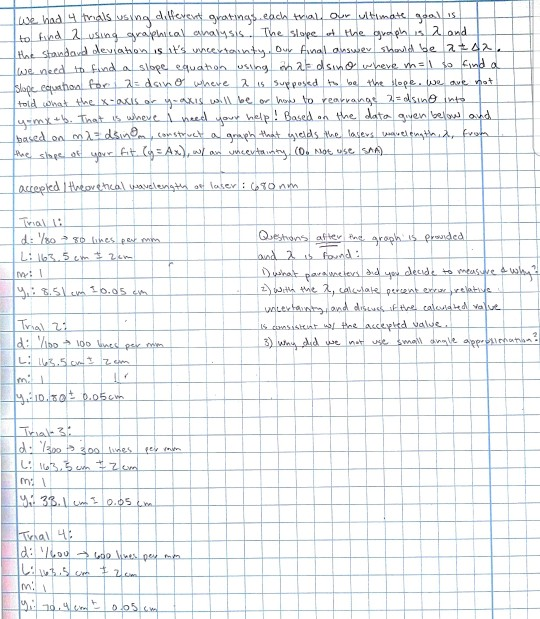 We had 4 trials using different gratings each trial. Our ultimate goal is
to find λ using graphical analysis. The slope of the graph is λ and
the standard deviation is it's uncertainty. Our final answer should be λ ± Δλ.
We need to find a slope equation using mλ = dsinθ where m=1 so find a
slope equation for: λ = dsinθ where λ is supposed to be the slope. We are not
told what the x-axis or y-axis will be or how to rearrange λ=dsinθ into
y=mx+b. That is where I need your help! Based on the data given below and
based on mλ = dsinθm, construct a graph that yields the lasers wavelength, λ, from
the slope of your fit (y=Ax), w/ an uncertainty. (Do Not use SAA)
accepted/theoretical wavelength of laser: 680 nm
Trial 1:
d: 1/80 → 80 lines per mm
L: 163.5 cm ± 2cm
m: 1
y₁: 8.51 cm ± 0.05 cm
Trial 2:
d: 1/100 → 100 lines per mm
L: 163.5 cm ± 2cm
m: 1
y₁: 10.80 ± 0.05cm
Trial 3:
d: 1/300 → 300 lines per mm
L: 163.5 cm ± 2 cm
m: 1
y₁: 33.1 cm ± 0.05 cm
Trial 4:
d: 1/600 → 600 lines per mm
L: 163.5 cm ± 2cm
m: 1
y₁: 70.4 cm ± 0.05 cm
Questions after the graph is provided
and λ is found:
1) what parameters did you decide to measure & why?
2) with the λ, calculate percent error, relative
uncertainty, and discuss if the calculated value
is consistent w/ the accepted value.
3) Why did we not use small angle approximation?